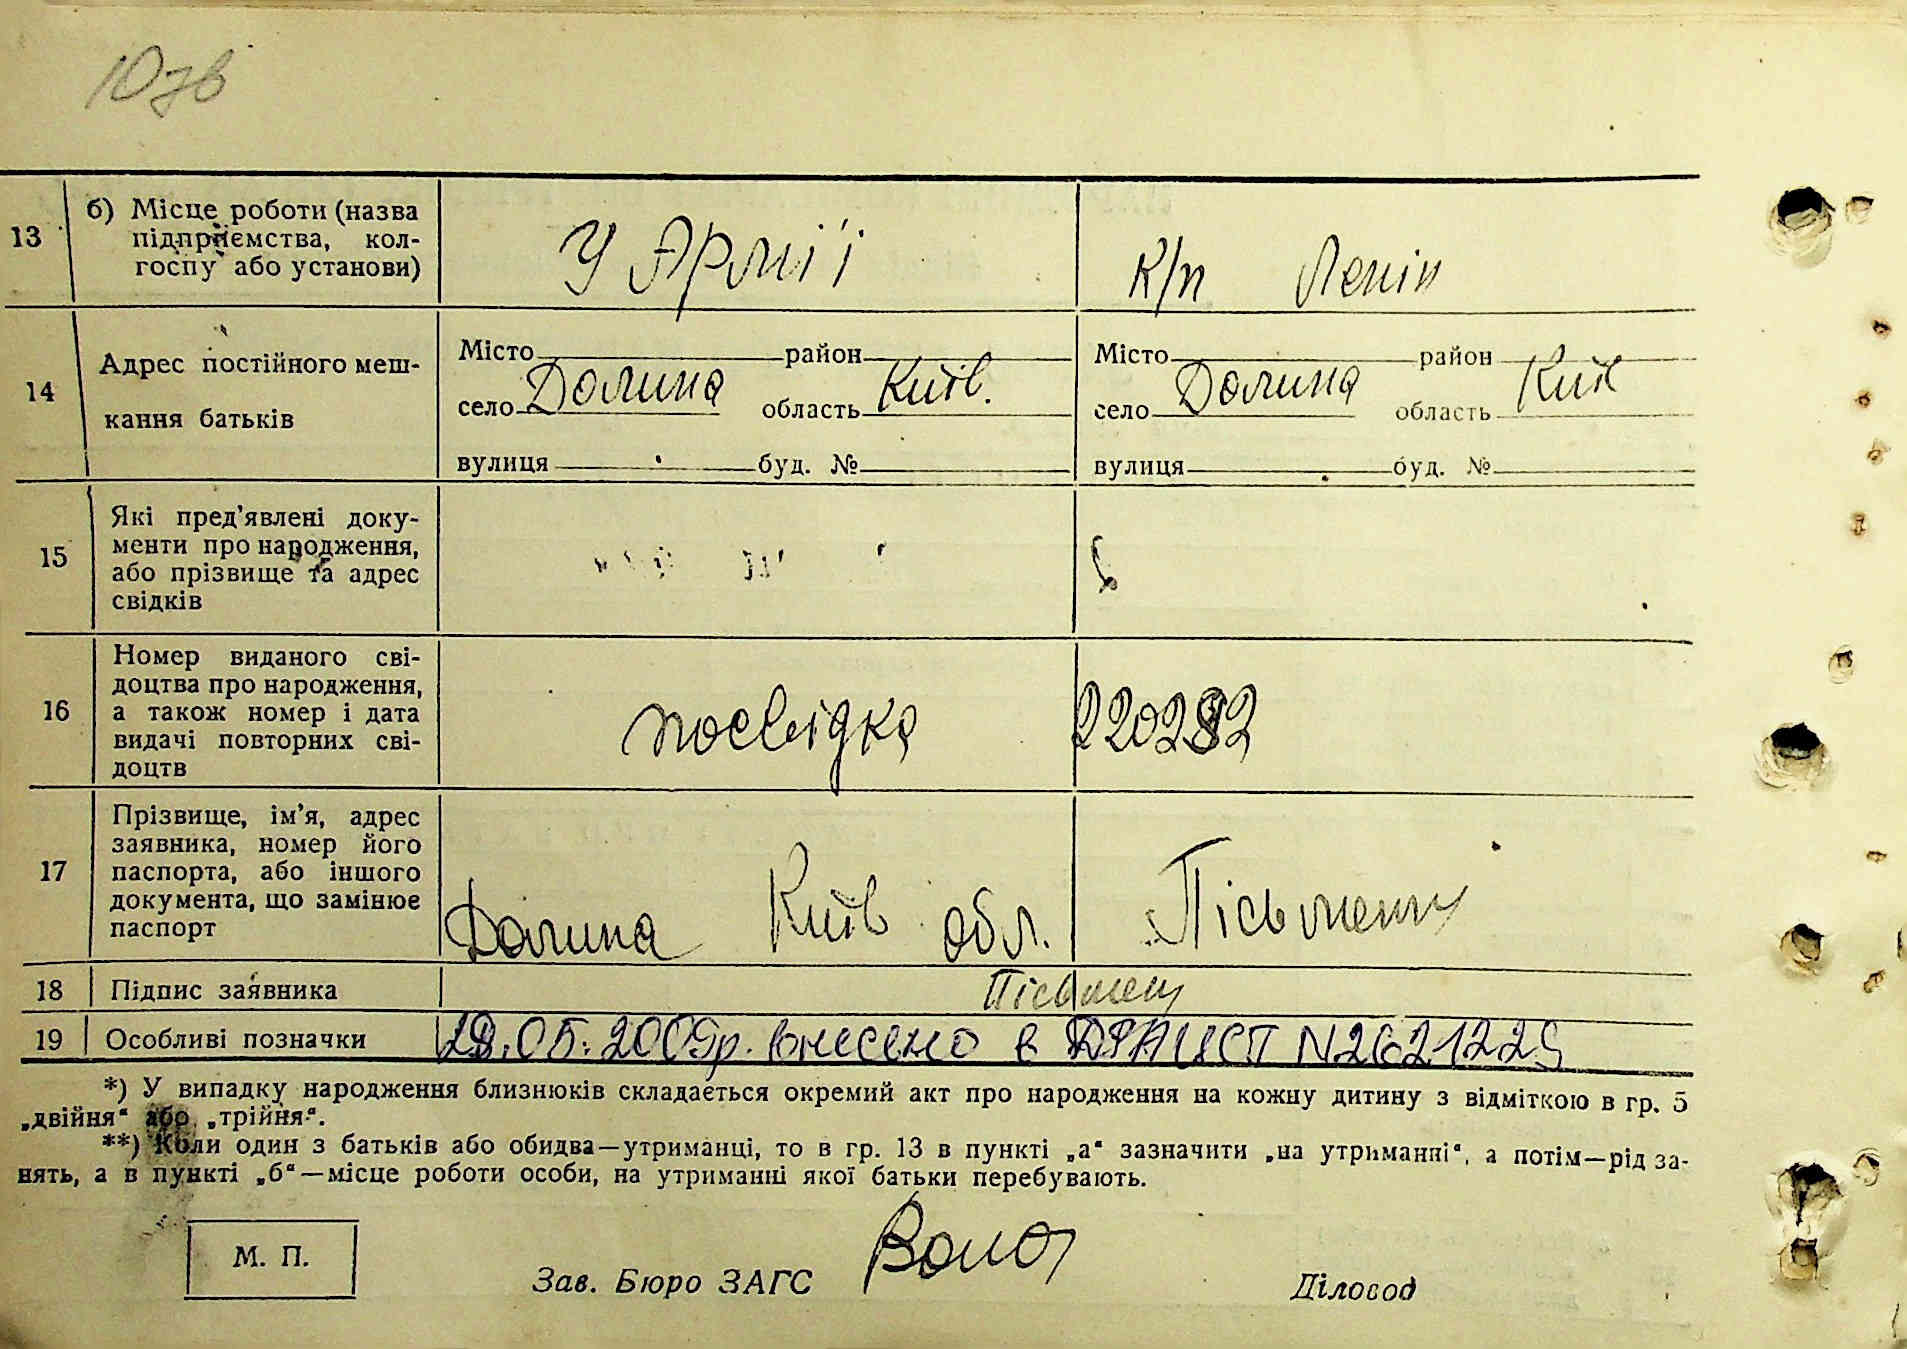 10 зв
13
б) Місце роботи (назва
підприємства, кол-
госпу або установи)
У Армії
к/п Ленін
14
Адрес постійного меш-
кання батьків
Місто район
село Долина область Київ.
вулиця буд. №
Місто район
село Долина область Київ
вулиця буд. №
15
Які пред'явлені доку-
менти про народження,
або прізвище та адрес
свідків
16
Номер виданого сві-
доцтва про народження,
а також номер і дата
видачі повторних сві-
доцтв
посвідка 220282
17
Прізвище, ім'я, адрес
заявника, номер його
паспорта, або іншого
документа, що замінює
паспорт
Долина Київ обл. Пісьменн
18 Підпис заявника
Пісьмен
19 Особливі позначки
28.05.2009р. внесено в ДРАЦСП N2621225
*) У випадку народження близнюків складається окремий акт про народження на кожну дитину з відміткою в гр. 5
„двійня“ або „трійня“.
**) Коли один з батьків або обидва—утриманці, то в гр. 13 в пункті „а“ зазначити „на утриманні“, а потім—рід за-
нять, а в пункті „б“—місце роботи особи, на утриманні якої батьки перебувають.
М. П.
Зав. Бюро ЗАГС
Діловод